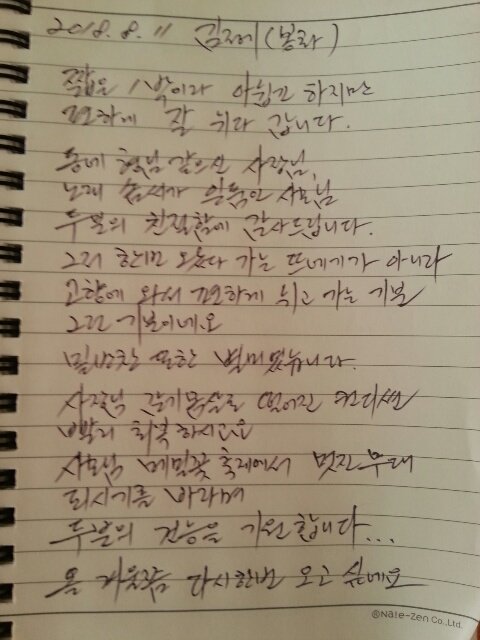 2018. 8. 11 김
짧은 1박이라 아쉽고 하지만
편하게 잘 쉬다 갑니다.
동네 형님 같으신 사장님,
노래 솜씨가 일품인 사모님
두분의 친절함에 감사드립니다.
그저 한번 왔다 가는 뜨네기가 아니라
고향에 와서 편하게 쉬고 가는 기분
그런 기분이네요
밑반찬 또한 별미였습니다.
사장님 감기몸살로 떨어진 컨디션
빨리 회복하시고요
사모님 메밀꽃 축제에서 멋진 무대
되시기를 바라며
두분의 건승을 기원합니다...
올 겨울쯤 다시한번 오고 싶네요
©Nale-Zen Co., Ltd